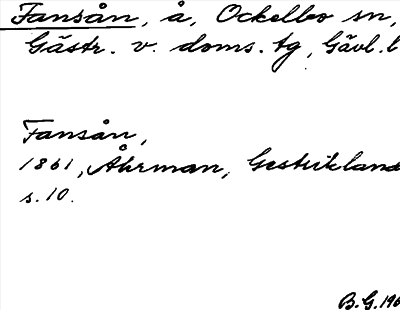 Fansån, å, Ockelbo sn,
Gästr. v. doms. tg, Gävl. l
Fansån,
1861, Åhrman, Gestrikland
s. 10.
B.G. 196